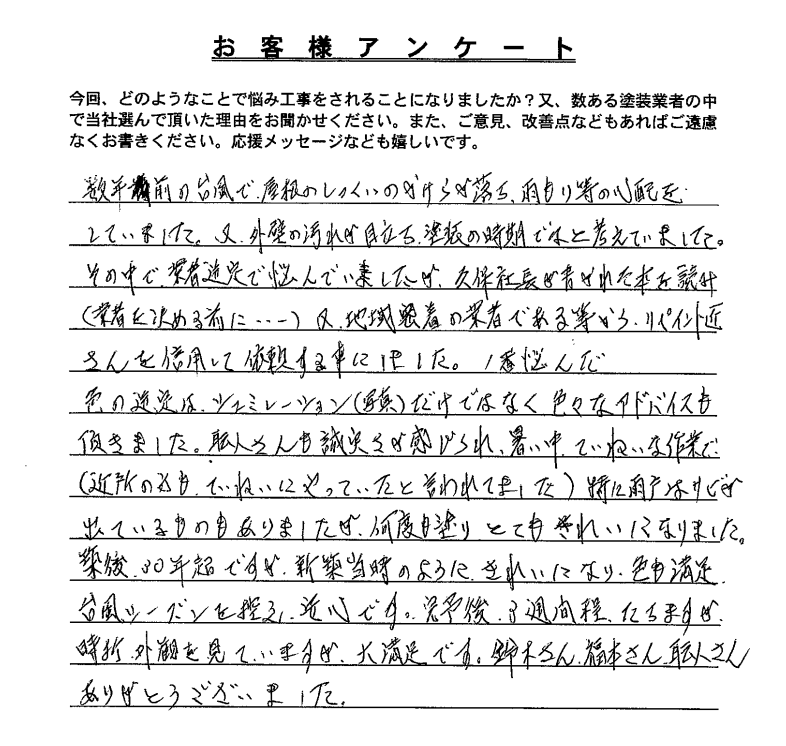 お客様アンケート
今回、どのようなことで悩み工事をされることになりましたか？又、数ある塗装業者の中
で当社選んで頂いた理由をお聞かせください。また、ご意見、改善点などもあればご遠慮
なくお書きください。応援メッセージなども嬉しいです。
数年前の台風で、屋根のしっくいのかけらが落ち、雨もり等の心配を
していました。又、外壁の汚れが目立ち、塗装の時期ではと考えていました。
その中で、業者選定で悩んでいましたが、久保社長が書かれた本を読み
(業者を決める前に…) 又、地域密着の業者である等から、リペイント匠
さんを信用して依頼する事にしました。1番悩んだ
色の選定は、シュミレーション(写真)だけではなく色々なアドバイスも
頂きました。職人さんも誠実さが感じられ、暑い中、ていねいな作業で
(近所の方も、ていねいにやっていたと言われてました) 特に雨戸はサビが
出ているものもありましたが、何度も塗りとてもきれいになりました。
築後、30年超ですが、新築当時のようにきれいになり、色も満足、
台風シーズンを控え、安心です。完了後、3週間程、たちますが、
時折、外観を見ていますが、大満足です。鈴木さん、福本さん、職人さん
ありがとうございました。